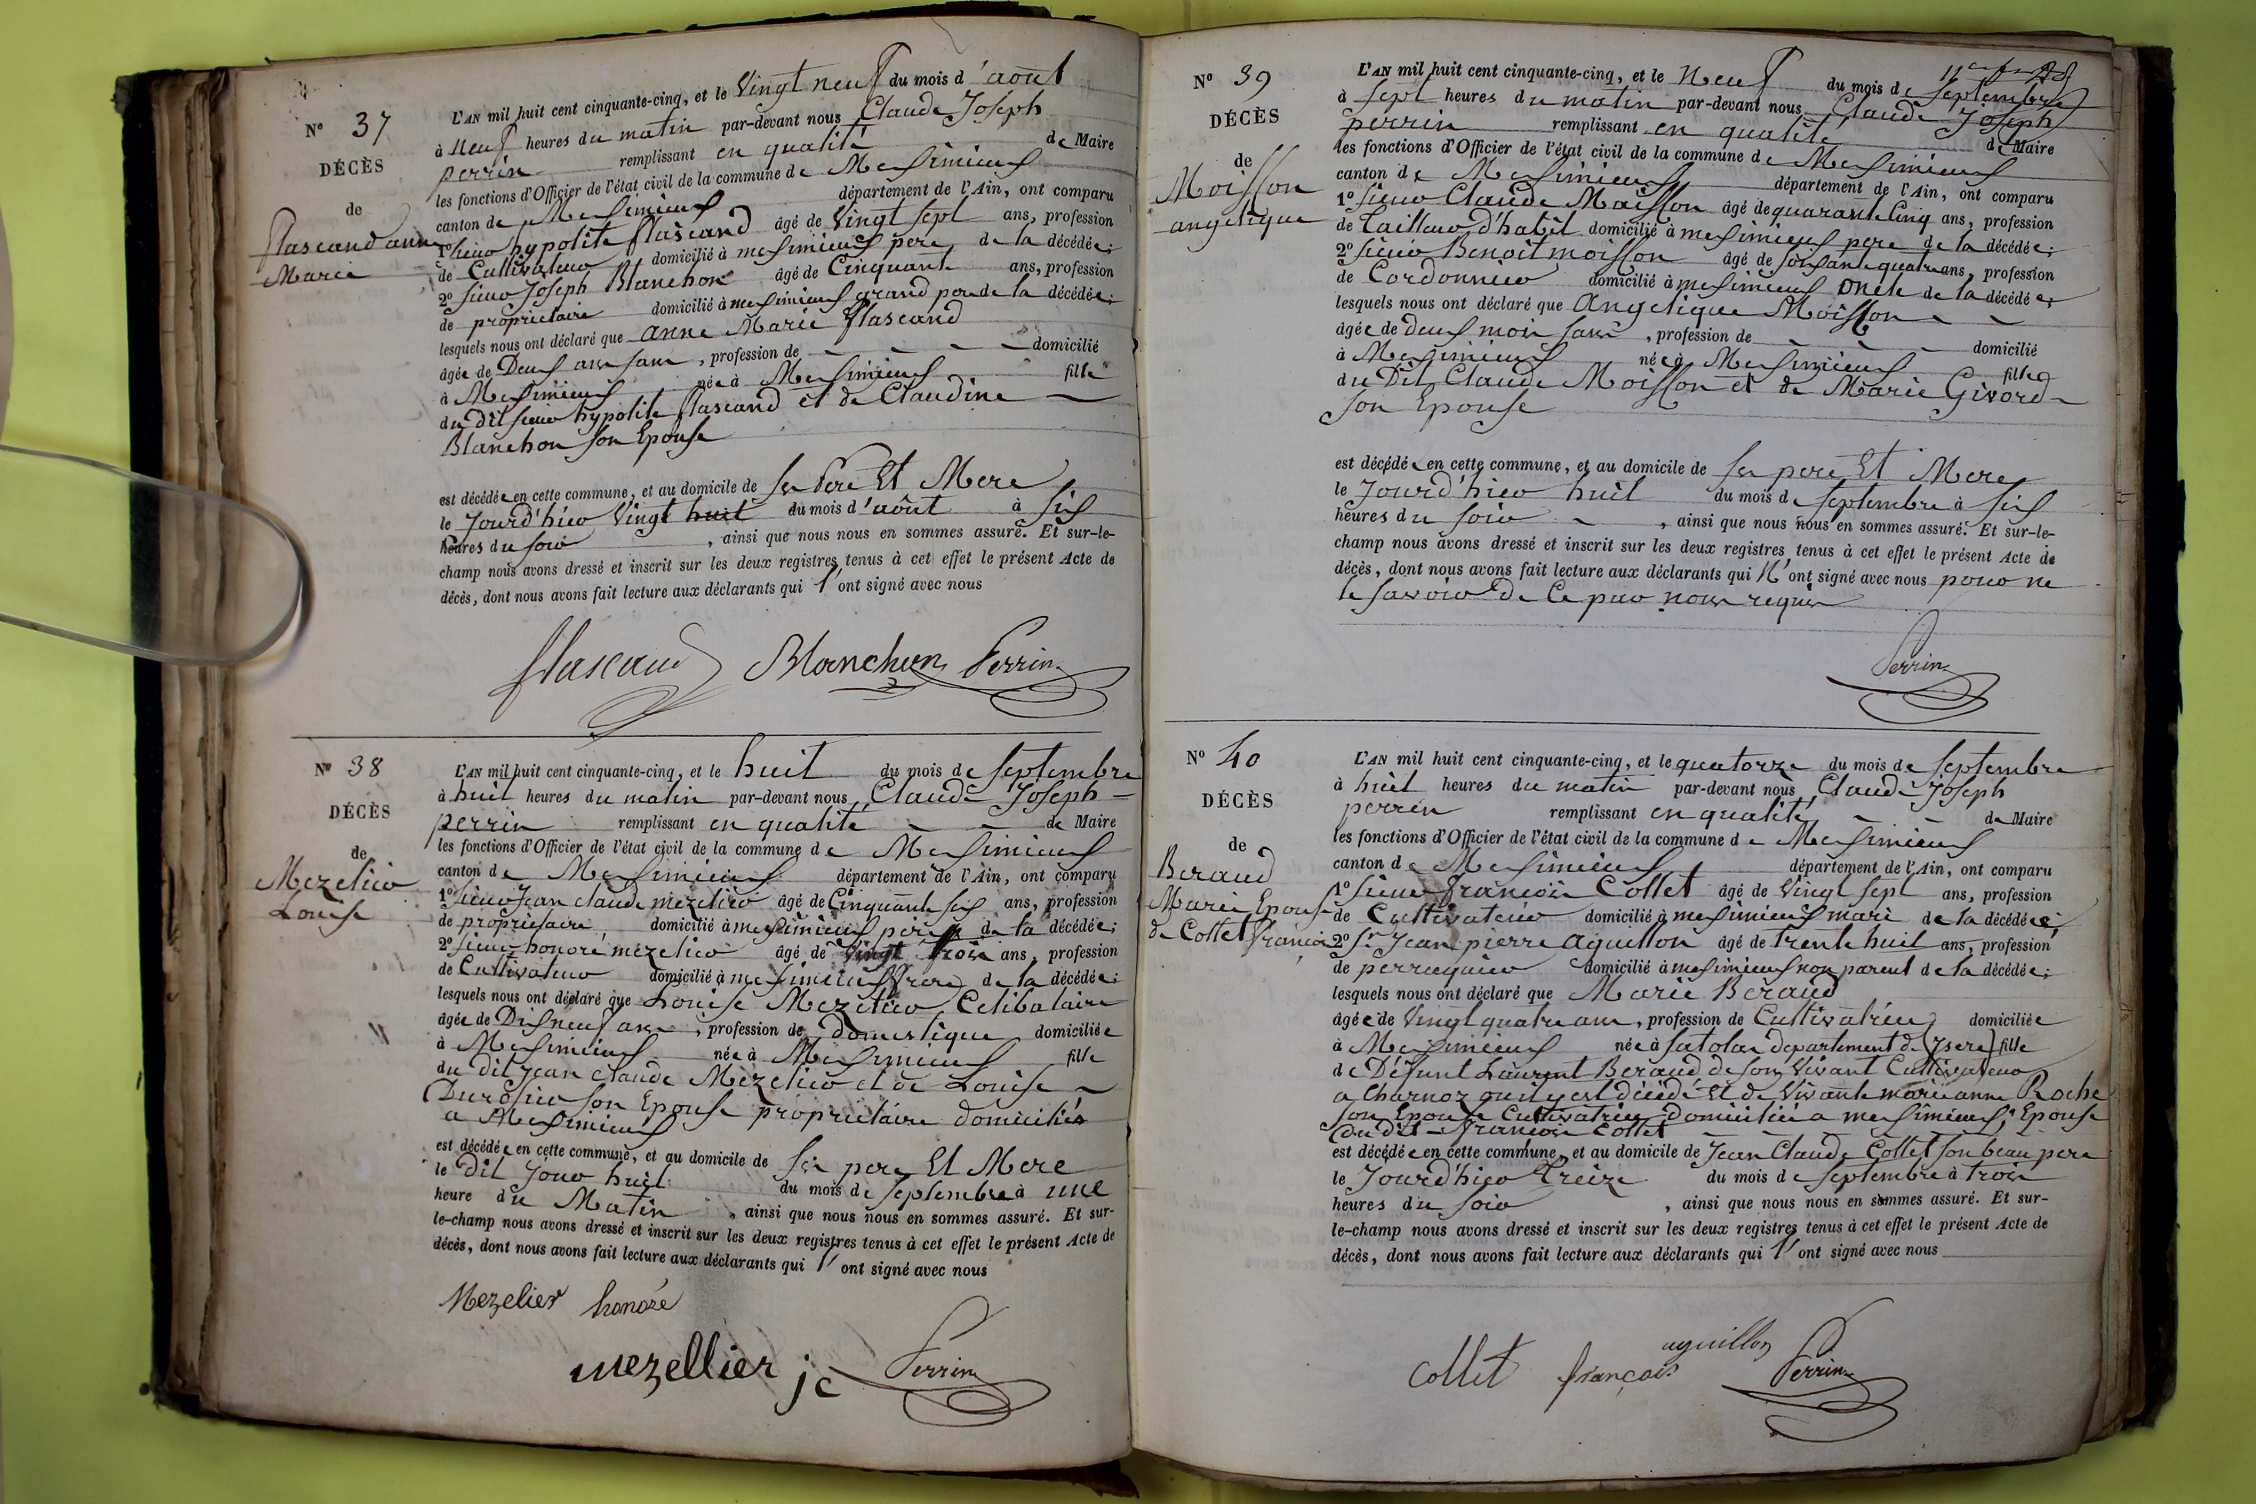 N° 37
DÉCÈS
de
flascand anne
Marie
L'AN mil huit cent cinquante-cinq, et le Vingt neuf du mois d'août
à neuf heures du matin par-devant nous Claude Joseph
perrin remplissant en qualité de Maire
les fonctions d'Officier de l'état civil de la commune de Meximieux
canton de Meximieux département de l'Ain, ont comparu
1° sieur hypolite flascand âgé de Vingt sept ans, profession
de Cultivateur domicilié à meximieux pere de la décédée;
2° sieur Joseph Blanchon âgé de Cinquante ans, profession
de propriétaire domicilié à meximieux grand pere de la décédée;
lesquels nous ont déclaré que anne Marie flascand
âgée de Deux ans, profession de domicilié
à Meximieux née à Meximieux fille
du dit sieur hypolite flascand et de Claudine
Blanchon son Epouse
est décédée en cette commune, et au domicile de ses Pere Et Mere
le Jourd'hier Vingt huit du mois d'août à six
heures du soir, ainsi que nous nous en sommes assuré. Et sur-le-
champ nous avons dressé et inscrit sur les deux registres tenus à cet effet le présent Acte de
décès, dont nous avons fait lecture aux déclarants qui l'ont signé avec nous
flascand Blanchon Perrin
N° 38
DÉCÈS
de
Mezelier
Louise
L'AN mil huit cent cinquante-cinq, et le huit du mois de septembre
à huit heures du matin par-devant nous Claude Joseph
perrin remplissant en qualité de Maire
les fonctions d'Officier de l'état civil de la commune de Meximieux
canton de Meximieux département de l'Ain, ont comparu
1° sieur Jean claude mezelier âgé de Cinquante six ans, profession
de propriétaire domicilié à meximieux père de la décédée;
2° sieur honoré mezelier âgé de Vingt trois ans, profession
de Cultivateur domicilié à meximieux frere de la décédée;
lesquels nous ont déclaré que Louise Mezelier Celibataire
âgée de Dix neuf ans, profession de domestique domiciliée
à Meximieux née à Meximieux fille
du dit Jean claude Mezelier et de Louise
son Epouse propriétaire domiciliés
a Meximieux
est décédée en cette commune, et au domicile de ses pere Et Mere
le dit Jour huit du mois de septembre à une
heure du Matin, ainsi que nous nous en sommes assuré. Et sur-
le-champ nous avons dressé et inscrit sur les deux registres tenus à cet effet le présent Acte de
décès, dont nous avons fait lecture aux déclarants qui l'ont signé avec nous
Mezelier honoré
mezellier jc Perrin
N° 39
DÉCÈS
de
Moisson
angelique
L'AN mil huit cent cinquante-cinq, et le Neuf du mois de septembre
à sept heures du matin par-devant nous Claude Joseph
perrin remplissant en qualité de Maire
les fonctions d'Officier de l'état civil de la commune de Meximieux
canton de Meximieux département de l'Ain, ont comparu
1° sieur Claude Moisson âgé de quarante Cinq ans, profession
de Tailleur d'habit domicilié à meximieux pere de la décédée;
2° sieur Benoit moisson âgé de soixante quatre ans, profession
de Cordonnier domicilié à meximieux oncle de la décédée
lesquels nous ont déclaré que Angelique Moisson
âgée de deux mois, profession de domicilié
à Meximieux née à Meximieux fille
du Dit Claude Moisson et de Marie Givord
son Epouse
est décédée en cette commune, et au domicile de ses pere Et Mere
le Jourd'hier huit du mois de septembre à six
heures du soir, ainsi que nous nous en sommes assuré. Et sur-le-
champ nous avons dressé et inscrit sur les deux registres tenus à cet effet le présent Acte de
décès, dont nous avons fait lecture aux déclarants qui N'ont signé avec nous pour ne
le savoir de Ce par nous requis
Perrin
N° 40
DÉCÈS
de
Beraud
Marie Epouse
de Collet françois
L'AN mil huit cent cinquante-cinq, et le quatorze du mois de septembre
à huit heures du matin par-devant nous Claude Joseph
perrin remplissant en qualité de Maire
les fonctions d'Officier de l'état civil de la commune de Meximieux
canton de Meximieux département de l'Ain, ont comparu
1° sieur françois Collet âgé de Vingt sept ans, profession
de Cultivateur domicilié à meximieux mari de la décédée
2° sr Jean pierre aguillon âgé de trente huit ans, profession
de perruquier domicilié à meximieux non parent de la décédée;
lesquels nous ont déclaré que Marie Beraud
âgée de Vingt quatre ans, profession de Cultivatrice domiciliée
à Meximieux née à satolas departement de (Isere) fille
de Défunt Laurent Beraud de son Vivant Cultivateur
a Charnoz ou il y est décédé Et de Vivante marie anne Roche
son Epouse Cultivatrice domiciliée a meximieux, Epouse
du dit françois Collet
est décédée en cette commune, et au domicile de Jean Claude Collet son beau pere
le Jourd'hier treize du mois de septembre à trois
heures du soir, ainsi que nous nous en sommes assuré. Et sur-
le-champ nous avons dressé et inscrit sur les deux registres tenus à cet effet le présent Acte de
décès, dont nous avons fait lecture aux déclarants qui l'ont signé avec nous
aguillon
Collet françois Perrin